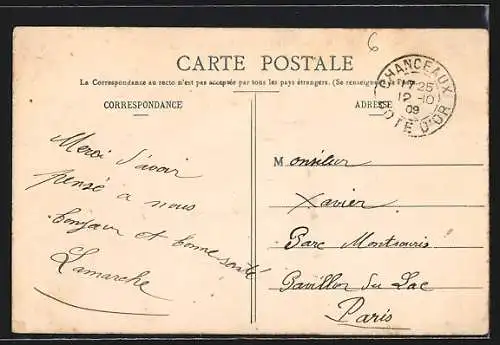 6
CARTE POSTALE
La Correspondance au recto n'est pas acceptée par tous les pays étrangers. (Se renseigner à la Poste)
CORRESPONDANCE
ADRESSE
CHANCEAUX
17 25
12 -10
09
COTE D'OR
Merci d'avoir
pensé a nous
bonjour et bonne santé
Lamarche
Monsieur
Xavier
Parc Montsouris
Pavillon du Lac
Paris